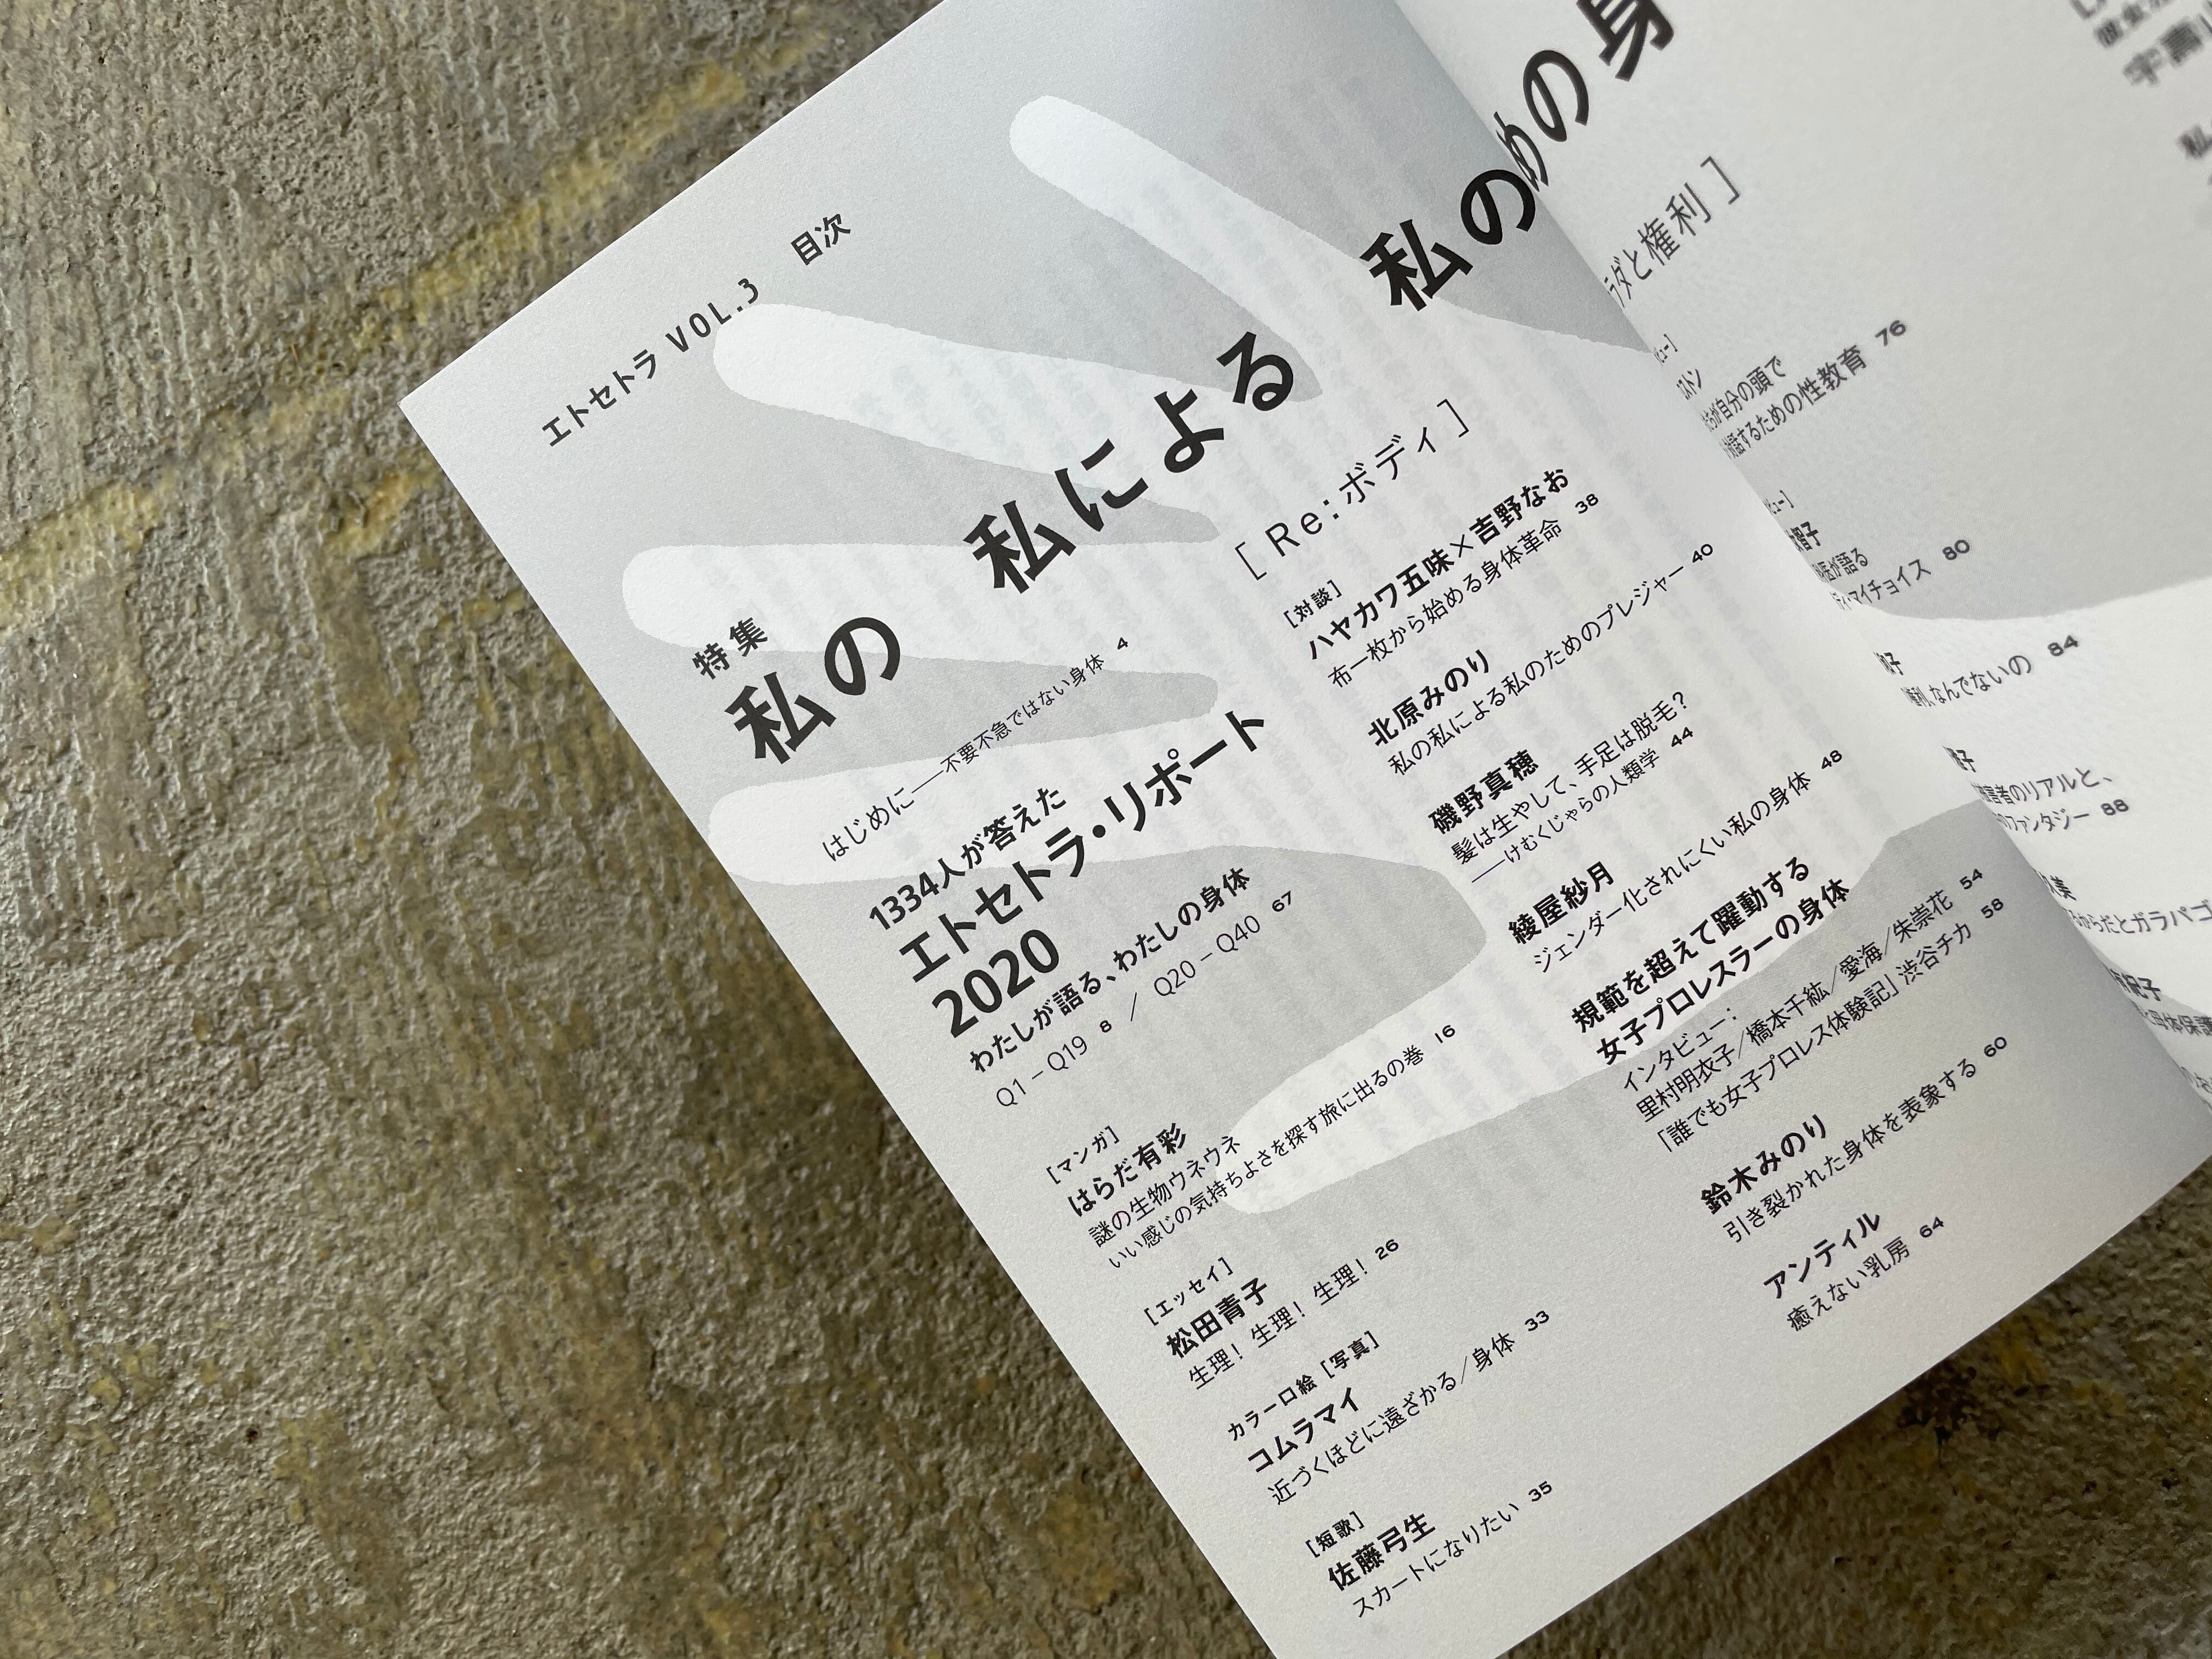 エトセトラ VOL.3 目次
特集
私の 私による 私のための身
はじめに——不要不急ではない身体 4
1334人が答えた
エトセトラ・リポート
2020
わたしが語る、わたしの身体
Q1−Q19 8 / Q20−Q40 67
[マンガ]
はらだ有彩
謎の生物ウネウネ
いい感じの気持ちよさを探す旅に出るの巻 16
[エッセイ]
松田青子
生理! 生理! 生理! 26
カラー口絵[写真]
コムラマイ
近づくほどに遠ざかる／身体 33
[短歌]
佐藤弓生
スカートになりたい 35
[Re:ボディ]
[対談]
ハヤカワ五味×吉野なお
布一枚から始める身体革命 38
北原みのり
私の私による私のためのプレジャー 40
磯野真穂
髪は生やして、手足は脱毛?
——けむくじゃらの人類学 44
綾屋紗月
ジェンダー化されにくい私の身体 48
規範を超えて躍動する
女子プロレスラーの身体
インタビュー：
里村明衣子／橋本千紘／愛海／朱崇花 54
「誰でも女子プロレス体験記」渋谷チカ 58
鈴木みのり
引き裂かれた身体を表象する 60
アンティル
癒えない乳房 64
ラダと権利]
が自分の頭で
するための性教育 76
智子
が語る
マイチョイス 80
なんでないの 84
害者のリアルと、
ファンタジー 88
からだとガラパゴ